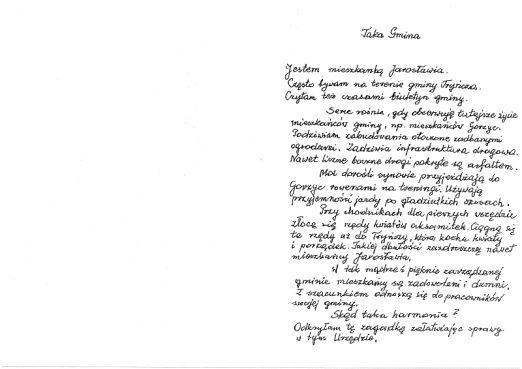 Taka Gmina
Jestem mieszkanką Jarosławia.
Często bywam na terenie gminy Tryńcza.
Czytam też czasami biuletyn gminy.
Serce rośnie, gdy obserwuję tutejsze życie
mieszkańców gminy, np. mieszkańców Gorzyc.
Podziwiam zabudowania otoczone zadbanymi
ogrodami. Zadziwia infrastruktura drogowa.
Nawet liczne boczne drogi pokryte są asfaltem.
Moi dorośli synowie przyjeżdżają do
Gorzyc rowerami na treningi. Używają
przyjemności jazdy po gładziutkich szosach.
Przy chodnikach dla pieszych wszędzie
złocą się rzędy kwiatów aksamitek. Ciągną się
te rzędy aż do Tryńczy, która kocha kwiaty
i porządek. Takiej dbałości zazdroszczę nawet
mieszkańcy Jarosławia.
W tak mądrze i pięknie zarządzanej
gminie mieszkańcy są zadowoleni i dumni.
Z szacunkiem odnoszą się do pracowników
swojej gminy.
Skąd taka harmonia?
Odkryłam tę zagadkę załatwiając sprawy
w tym Urzędzie.